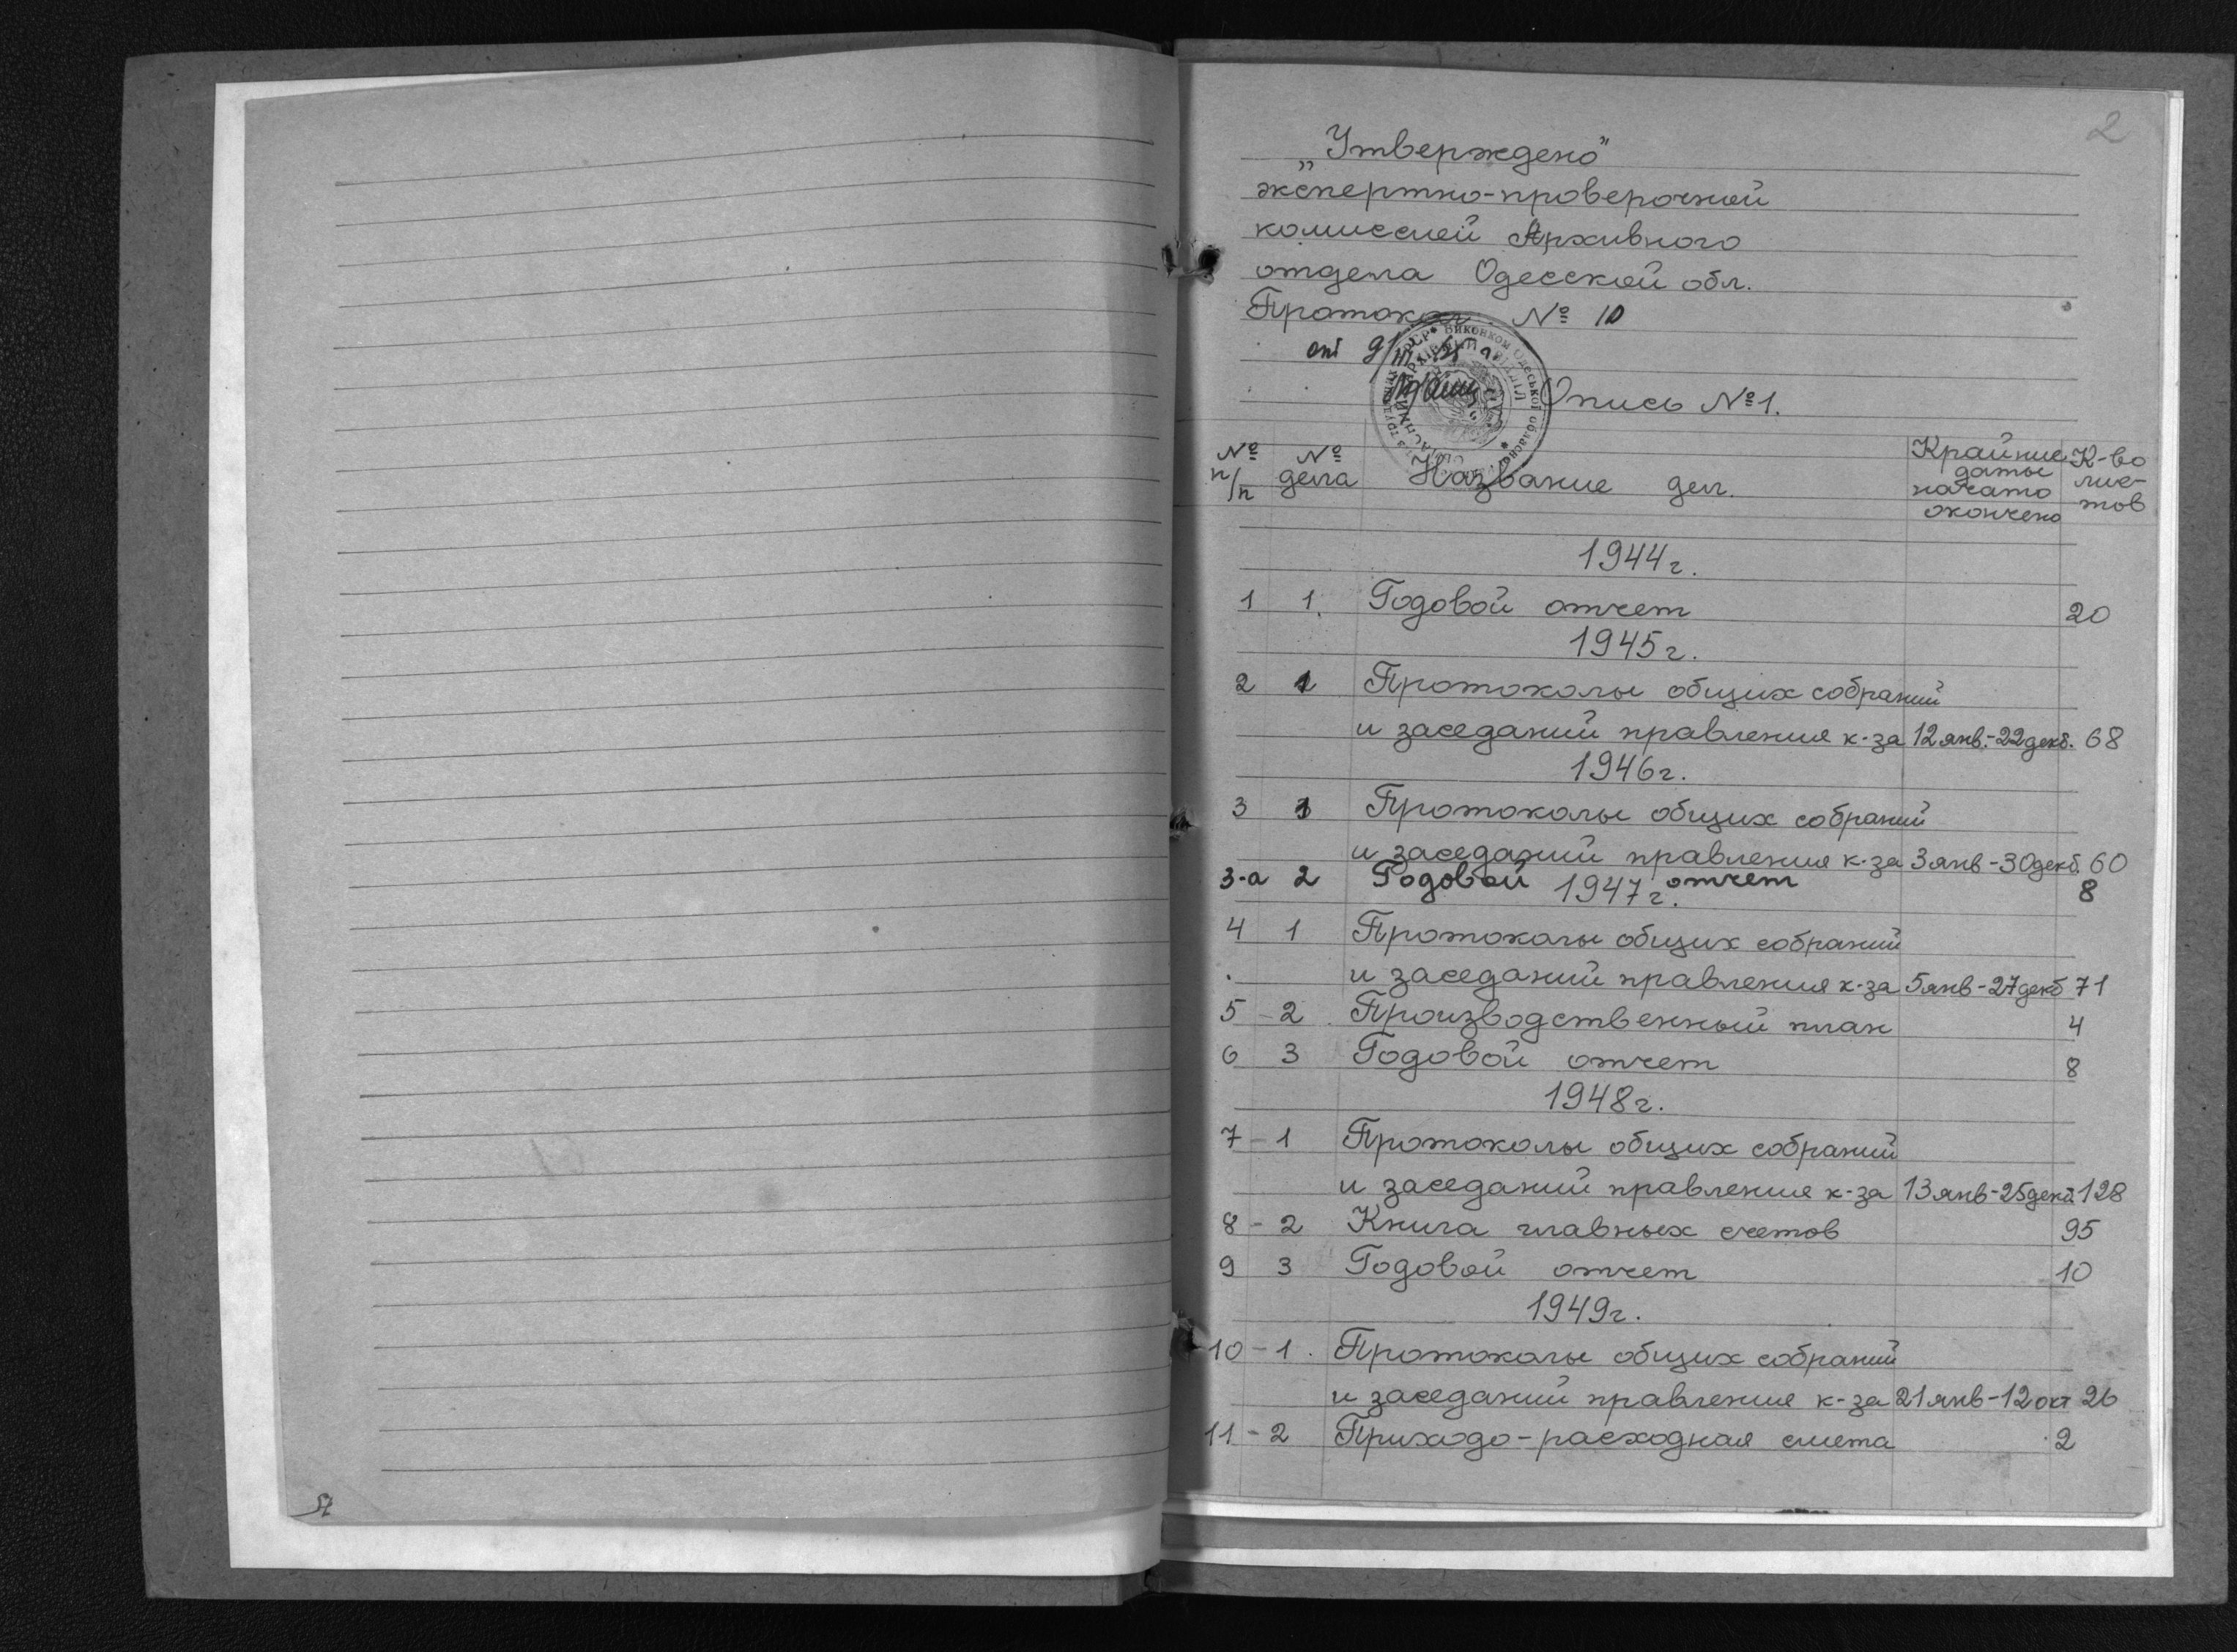 2
„Утверждено"
экспертно-проверочной
комиссией Архивного
отдела Одесской обл.
Протокол № 10
от 9/III
Опись №1.
№ п/п № дела Название дел. Крайние даты начато окончено К-во лис-тов
1944г.
1 1. Годовой отчет 20
1945г.
2 1 Протоколы общих собраний
и заседаний правления к-за 12 янв.-22 декб. 68
1946г.
3 1 Протоколы общих собраний
и заседаний правления к-за 3 янв-30 декб. 60
3-а 2 Годовой отчет 8
1947г.
4 1 Протоколы общих собраний
и заседаний правления к-за 5 янв-27 декб 71
5-2 Производственный план 4
6 3 Годовой отчет 8
1948г.
7-1 Протоколы общих собраний
и заседаний правления к-за 13 янв-25 декб 128
8-2 Книга главных счетов 95
9 3 Годовой отчет 10
1949г.
10-1. Протоколы общих собраний
и заседаний правления к-за 21 янв-12 окт 26
11-2 Приходо-расходная смета 2